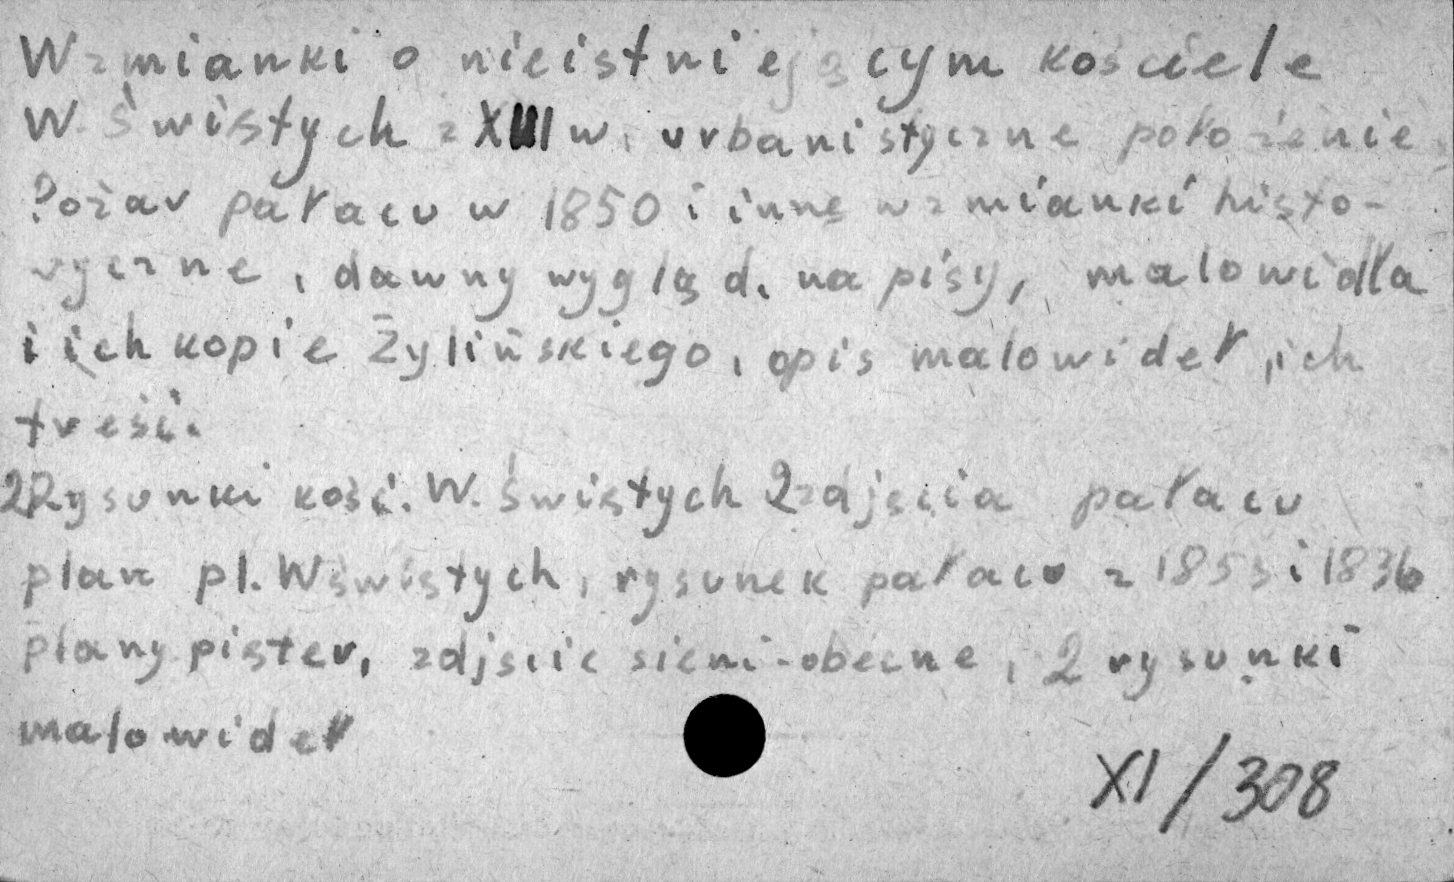 Wzmianki o nieistniejącym kościele
W. Świętych z XIII w. urbanistyczne położenie
Pożar pałacu w 1850 i inne wzmianki histo-
ryczne, dawny wygląd, napisy, malowidła
i ich kopie Żylińskiego, opis malowideł, ich
treść.
2 Rysunki kość. W. Świętych 2 zdjęcia pałacu
plan pl. WŚwiętych, rysunek pałacu z 1853 i 1836
plany pięter, zdjęcie sieni-obecne, 2 rysunki
malowideł
XI/308